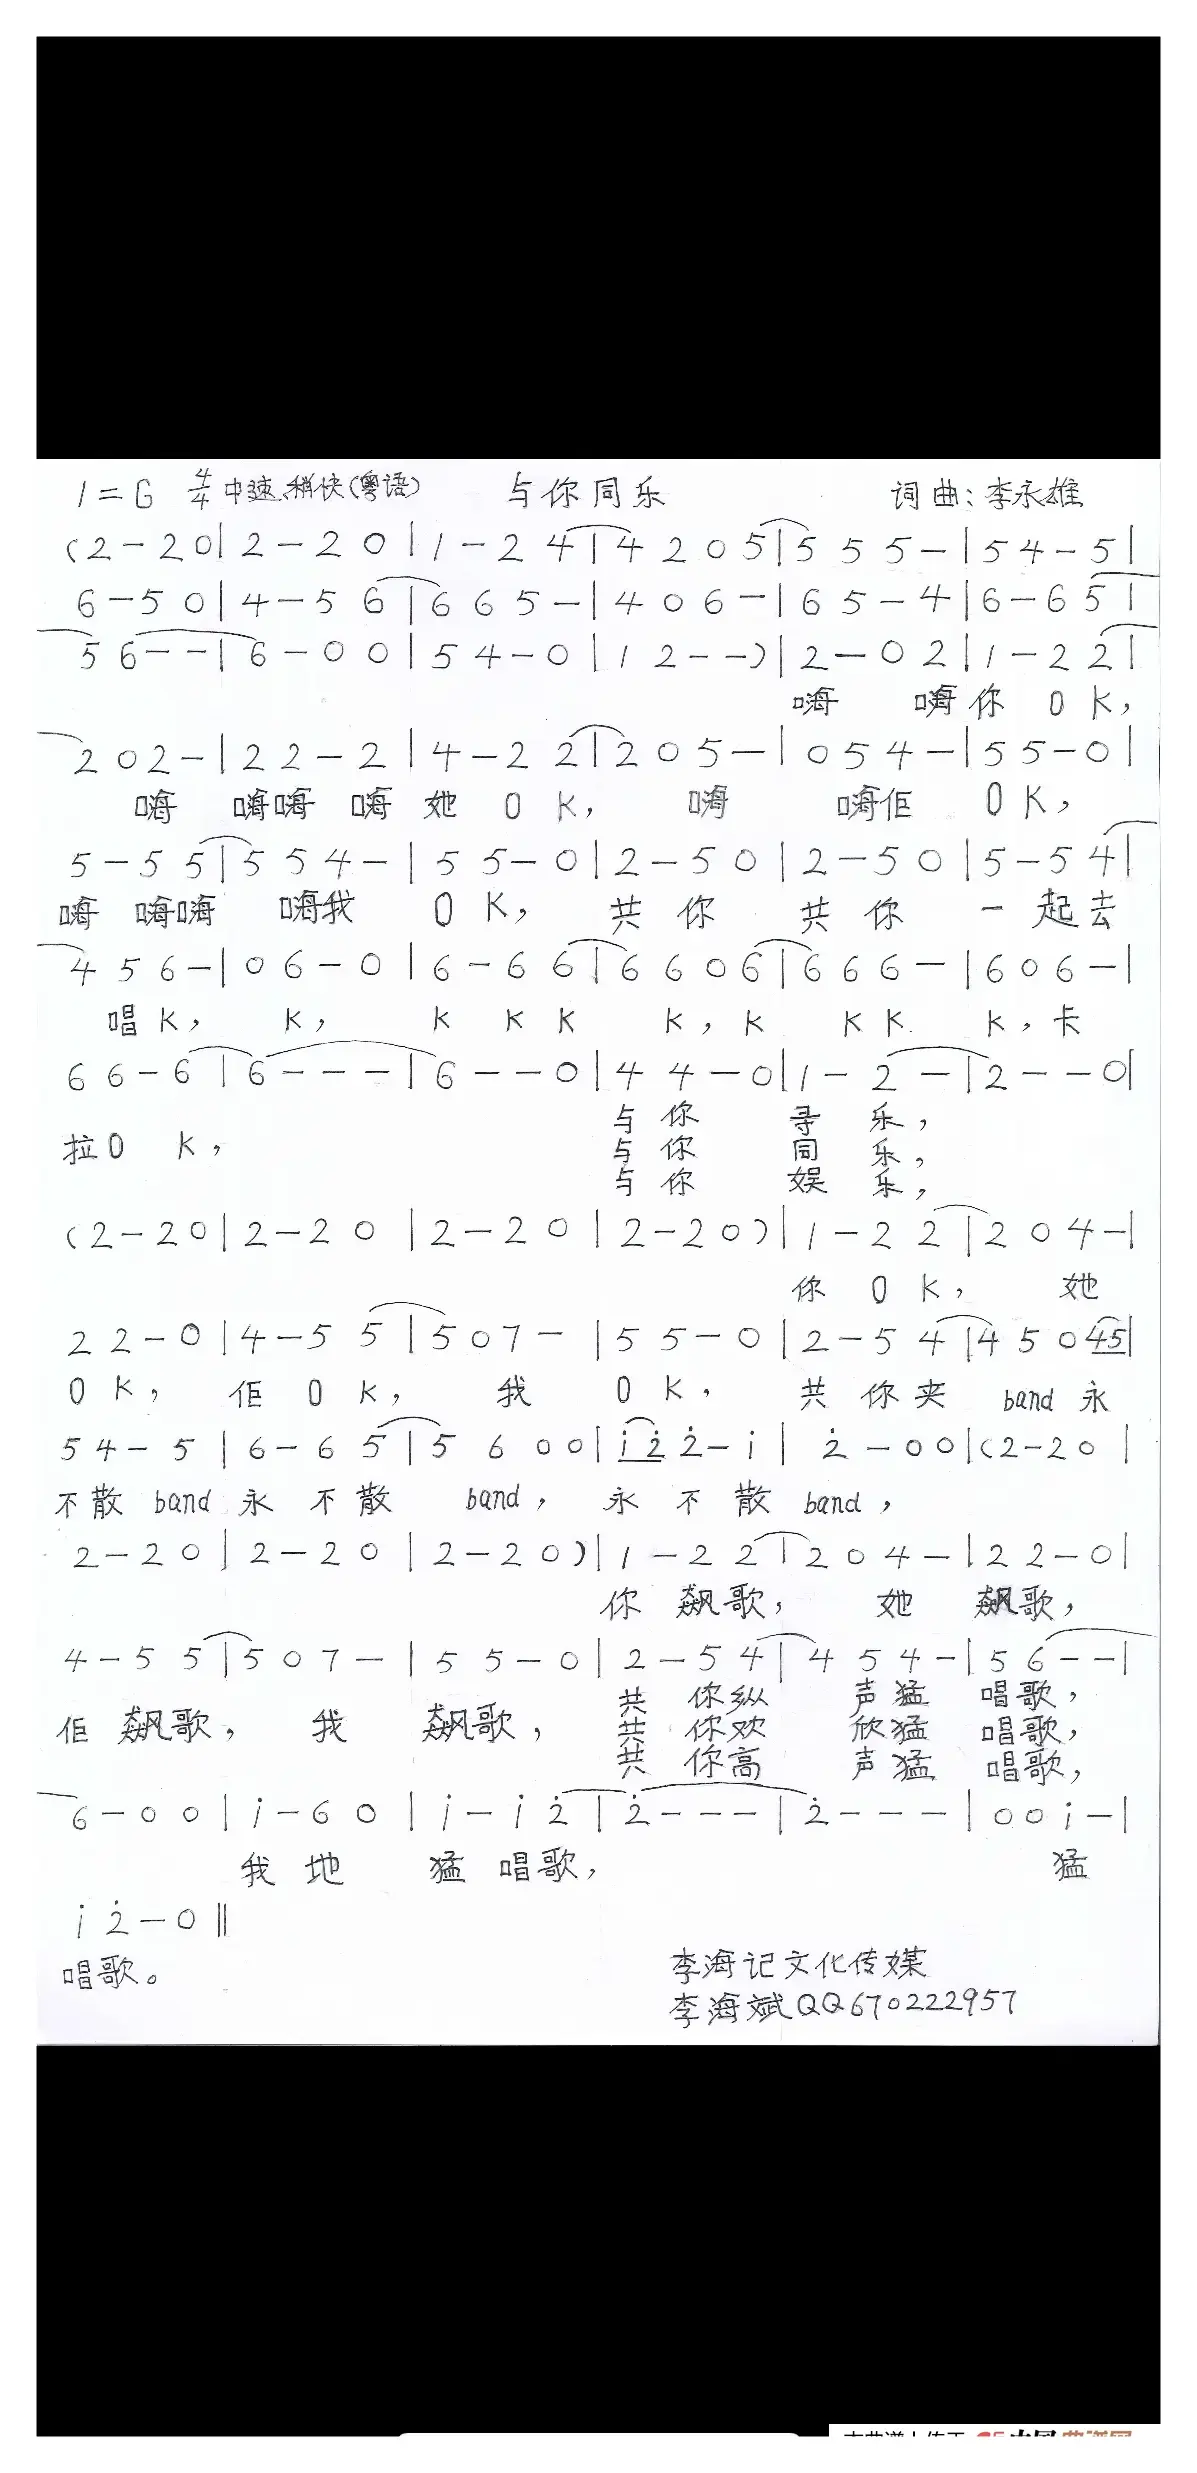 1=G 4/4 中速、稍快(粤语) 与你同乐 词曲:李永雄
(2-20|2-20|1-24|4205|555-|54-5|
6-50|4-56|665-|406-|65-4|6-65|
56--|6-00|54-0|12--)|2-02|1-22|
嗨 嗨你 O K,
202-|22-2|4-22|205-|054-|55-0|
嗨 嗨嗨 嗨她 O K, 嗨 嗨佢 O K,
5-55|554-|55-0|2-50|2-50|5-54|
嗨 嗨嗨 嗨我 O K, 共 你 共 你 一 起去
456-|06-0|6-66|6606|666-|606-|
唱K, K, K K K K,K K K K,卡
66-6|6---|6--0|44-0|1-2-|2--0|
与你 寻 乐,
拉O K, 与你 同 乐,
与你 娱 乐,
(2-20|2-20|2-20|2-20)|1-22|204-|
你 O K, 她
22-0|4-55|507-|55-0|2-54|45045|
O K, 佢 O K, 我 O K, 共 你夹 band永
54-5|6-65|5600|i̇2̇2̇-i̇|2̇-00|(2-20|
不散 band 永 不散 band, 永 不 散 band,
2-20|2-20|2-20)|1-22|204-|22-0|
你 飙歌, 她 飙歌,
4-55|507-|55-0|2-54|454-|56--|
共 你纵 声猛 唱歌,
佢 飙歌, 我 飙歌, 共 你欢 欣猛 唱歌,
共 你高 声猛 唱歌,
6-00|i̇-60|i̇-i̇2̇|2̇---|2̇---|00i̇-|
我 地 猛 唱歌, 猛
i̇2̇-0‖
唱歌。
李海记文化传媒
李海斌QQ670222957